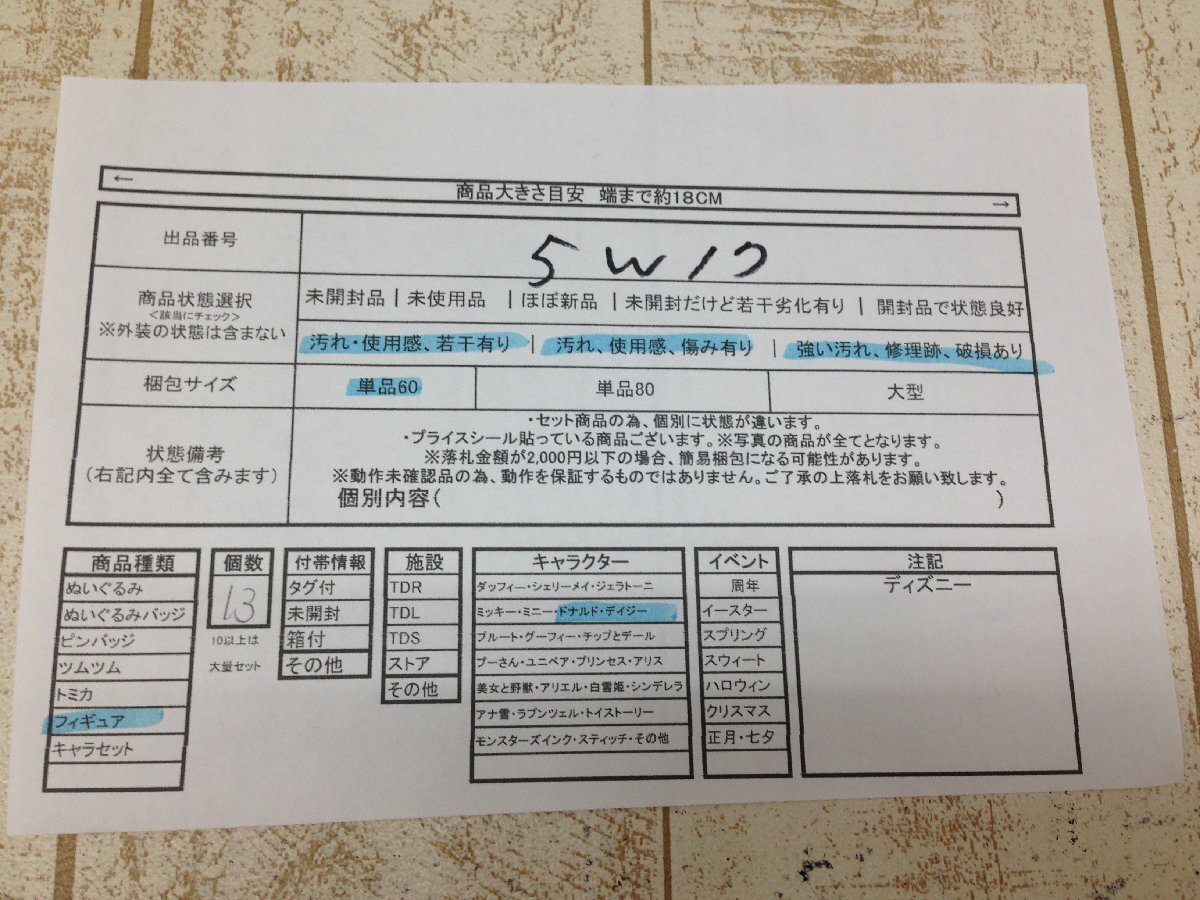 ← 商品大きさ目安 端まで約18CM →
出品番号 5W17
商品状態選択
<該当にチェック>
※外装の状態は含まない
未開封品 | 未使用品 | ほぼ新品 | 未開封だけど若干劣化有り | 開封品で状態良好
汚れ・使用感、若干有り | 汚れ、使用感、傷み有り | 強い汚れ、修理跡、破損あり
梱包サイズ 単品60 単品80 大型
状態備考
(右記内全て含みます)
・セット商品の為、個別に状態が違います。
・プライスシール貼っている商品ございます。※写真の商品が全てとなります。
※落札金額が2,000円以下の場合、簡易梱包になる可能性があります。
※動作未確認品の為、動作を保証するものではありません。ご了承の上落札をお願い致します。
個別内容( )
商品種類
ぬいぐるみ
ぬいぐるみバッジ
ピンバッジ
ツムツム
トミカ
フィギュア
キャラセット
個数
13
10以上は
大量セット
付帯情報
タグ付
未開封
箱付
その他
施設
TDR
TDL
TDS
ストア
その他
キャラクター
ダッフィー・シェリーメイ・ジェラトーニ
ミッキー・ミニー・ドナルド・デイジー
プルート・グーフィー・チップとデール
プーさん・ユニベア・プリンセス・アリス
美女と野獣・アリエル・白雪姫・シンデレラ
アナ雪・ラプンツェル・トイストーリー
モンスターズインク・スティッチ・その他
イベント
周年
イースター
スプリング
スウィート
ハロウィン
クリスマス
正月・七夕
注記
ディズニー